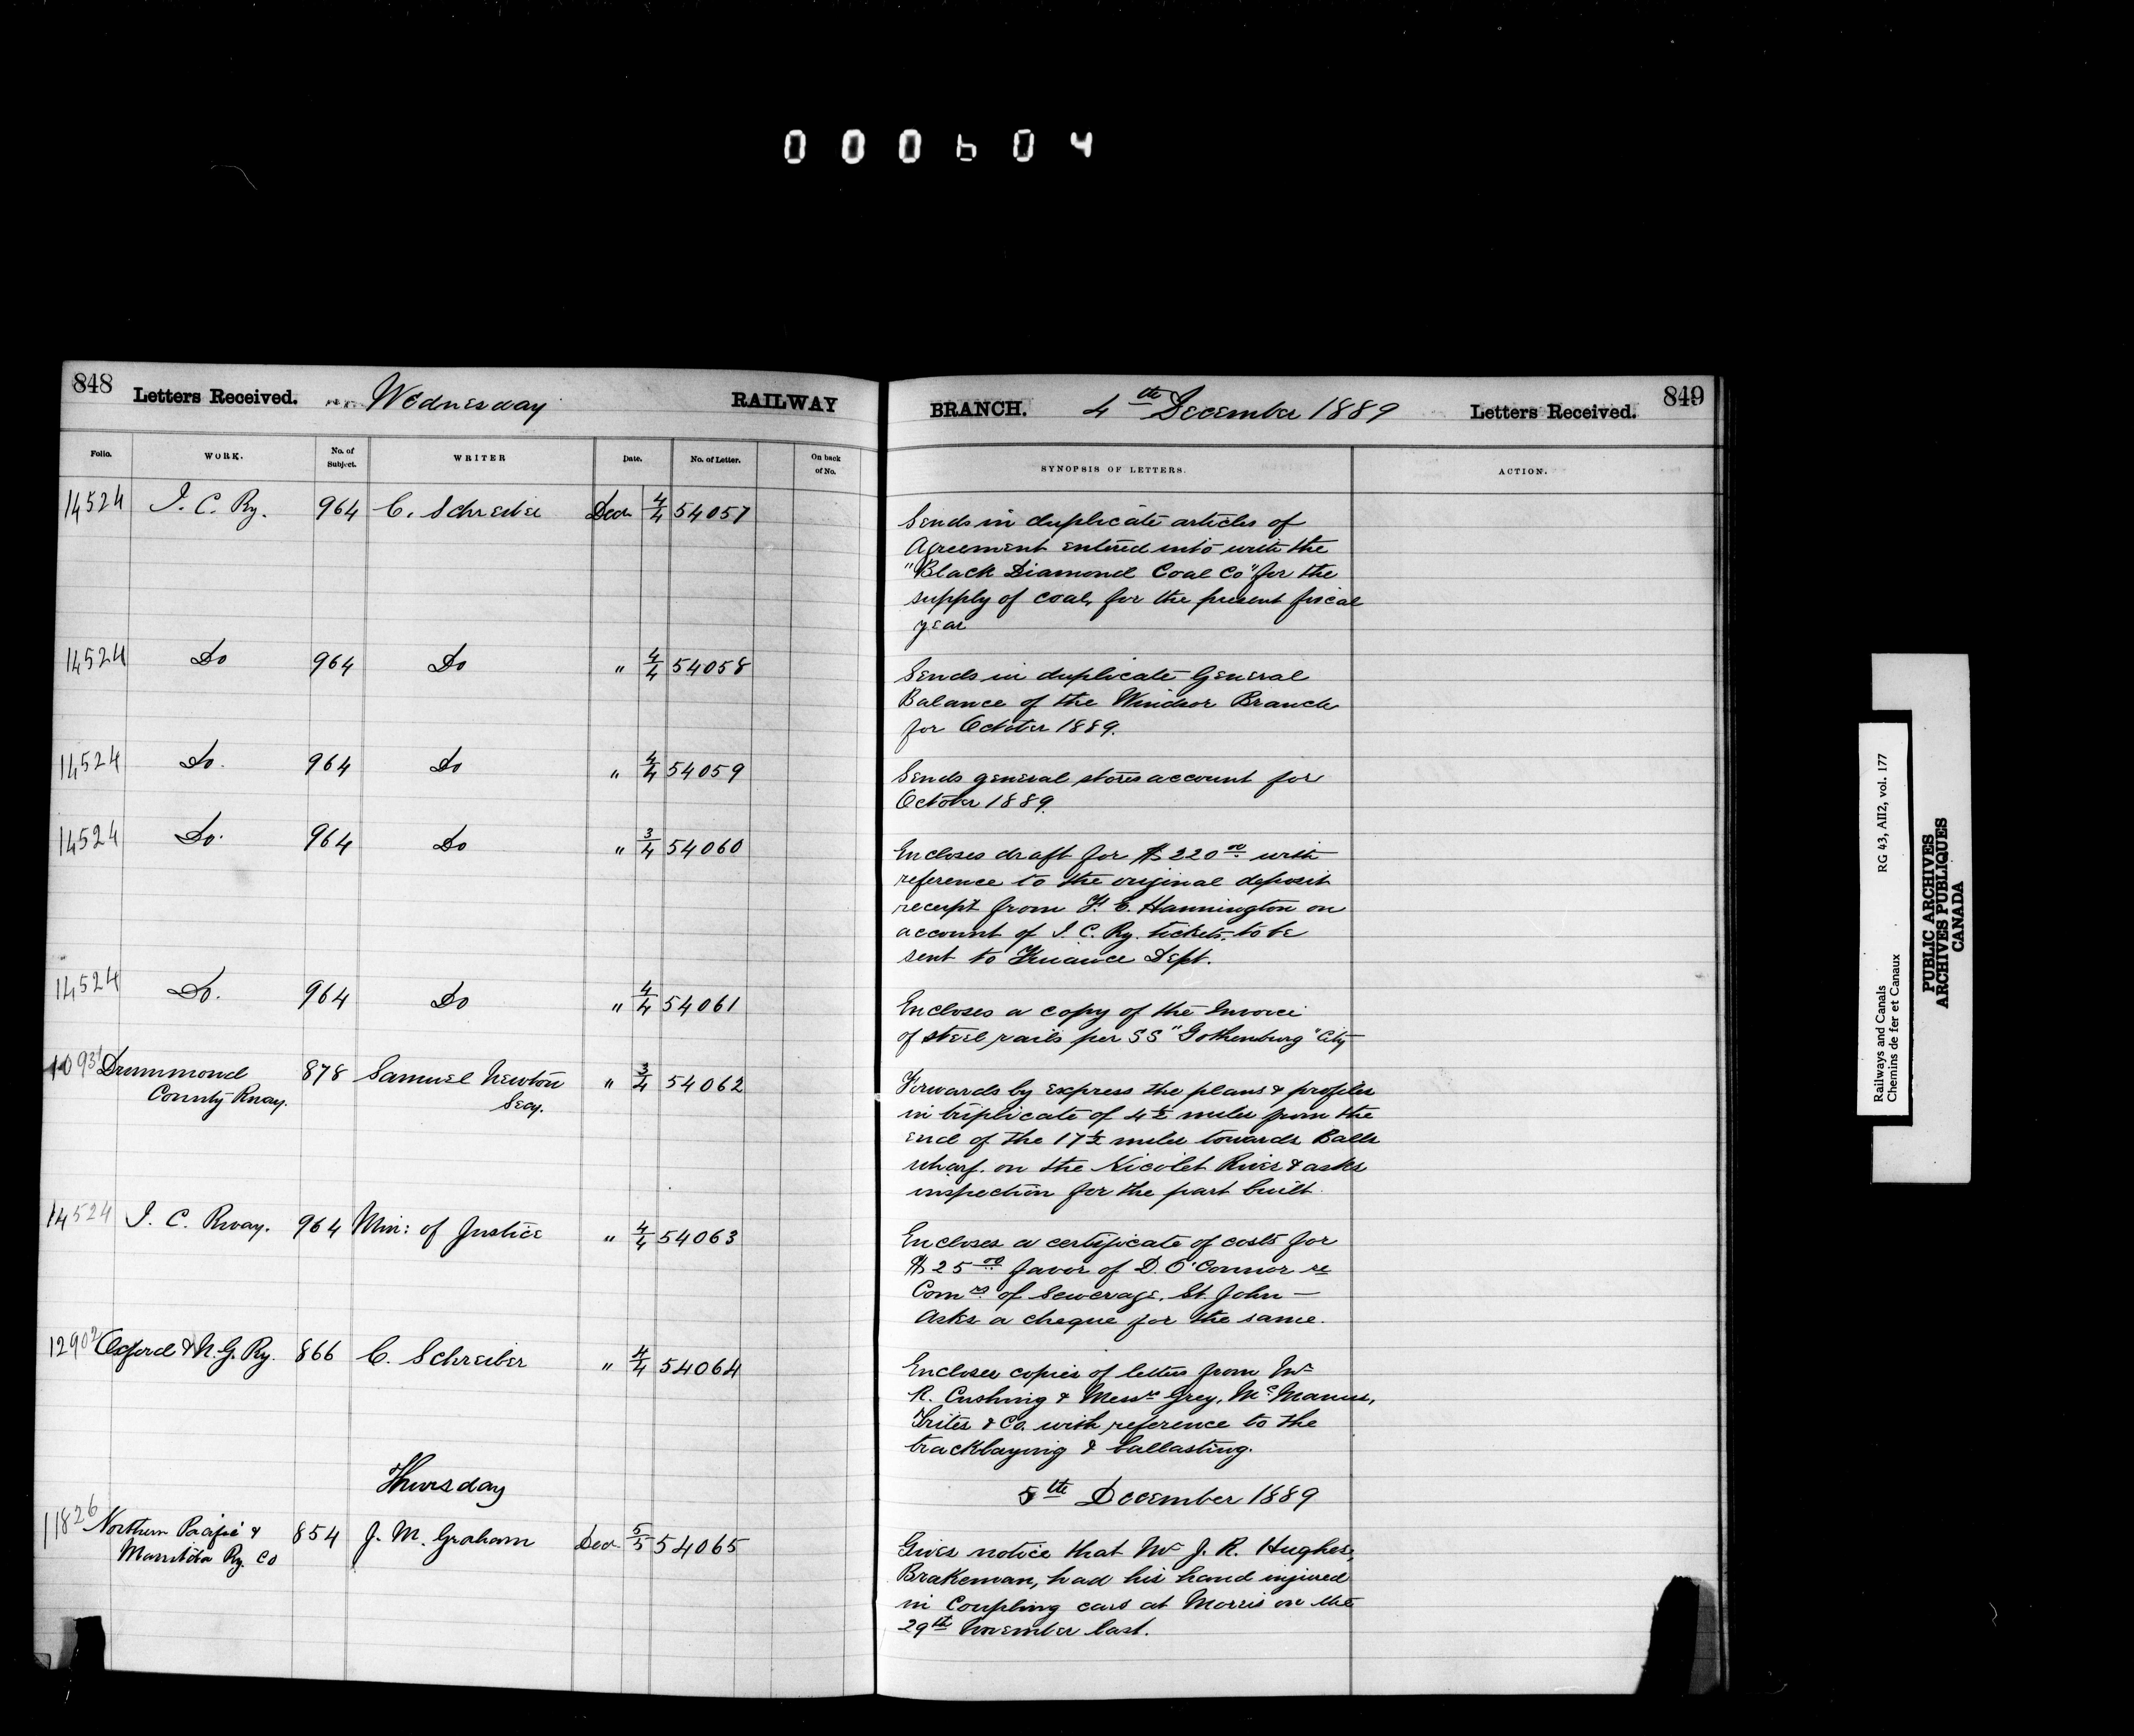 000604
848 Letters Received. Wednesday RAILWAY
BRANCH. 4th December 1889 Letters Received. 849
Folio. WORK. No. of Subject. WRITER Date. No. of Letter. On back of No.
SYNOPSIS OF LETTERS. ACTION.
14524 I. C. Ry. 964 C. Schreiber Decr 4/4 54057
Sends in duplicate articles of
Agreement entered into with the
"Black Diamond Coal Co" for the
supply of coal, for the present fiscal
year
14524 Do 964 Do " 4/4 54058
Sends in duplicate General
Balance of the Windsor Branch
for October 1889.
14524 Do. 964 Do " 4/4 54059
Sends general stores account for
October 1889.
14524 Do. 964 Do " 3/4 54060
Encloses draft for $220 00 with
reference to the original deposit
receipt from F. E. Hannington on
account of I. C. Ry. tickets. to be
sent to Finance Dept.
14524 Do. 964 Do " 4/4 54061
Encloses a copy of the Invoice
of steel rails per SS "Gothenburg" City
Drummond 878 Samuel Newton " 3/4 54062
County Rway. Secy.
Forwards by express the plans & profiles
in triplicate of 4½ miles from the
end of the 17½ miles towards Balls
wharf. on the Nicolet River & asks
inspection for the part built.
14524 I. C. Rway. 964 Min: of Justice " 4/4 54063
Encloses a certificate of costs for
$25 00 favor of D. O'Connor re
Comrs of Sewerage. St. John —
Asks a cheque for the same.
12902 Oxford & N. G. Ry. 866 C. Schreiber " 4/4 54064
Encloses copies of letters from Mr
R. Cushing & Messrs Grey, McManus,
Trites & Co. with reference to the
tracklaying & ballasting.
Thursday
5th December 1889
11826 Northern Pacific & 854 J. M. Graham Decr 5/5 54065
Manitoba Ry. Co
Gives notice that Mr J. R. Hughes,
Brakeman, had his hand injured
in Coupling cars at Morris on the
29th November last.
Railways and Canals RG 43, AII2, vol. 177
Chemins de fer et Canaux
PUBLIC ARCHIVES
ARCHIVES PUBLIQUES
CANADA